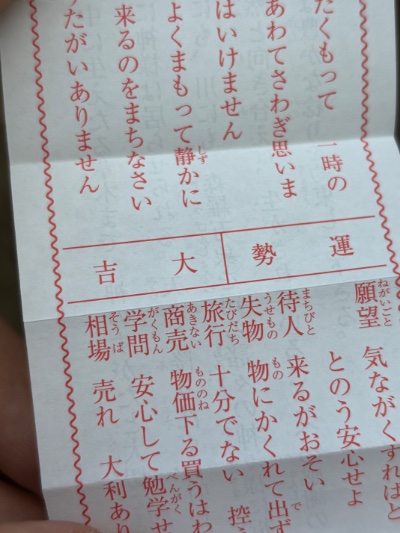 たくもって一時の
あわてさわぎ思いま
はいけません
よくまもって静かに
来るのをまちなさい
たがいありません
運勢
大吉
願望 気ながくすればと
とのう安心せよ
待人 来るがおそい
失物 物にかくれて出ず
旅行 十分でない 控
商売 物価下る買うはわ
学問 安心して勉学せ
相場 売れ 大利あり